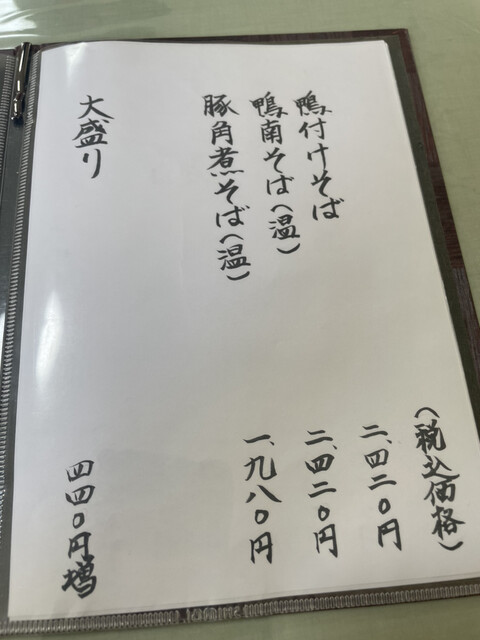 (税込価格)
鴨付けそば 二、四二〇円
鴨南そば(温) 二、四二〇円
豚角煮そば(温) 一、九八〇円
大盛り 四四〇円増